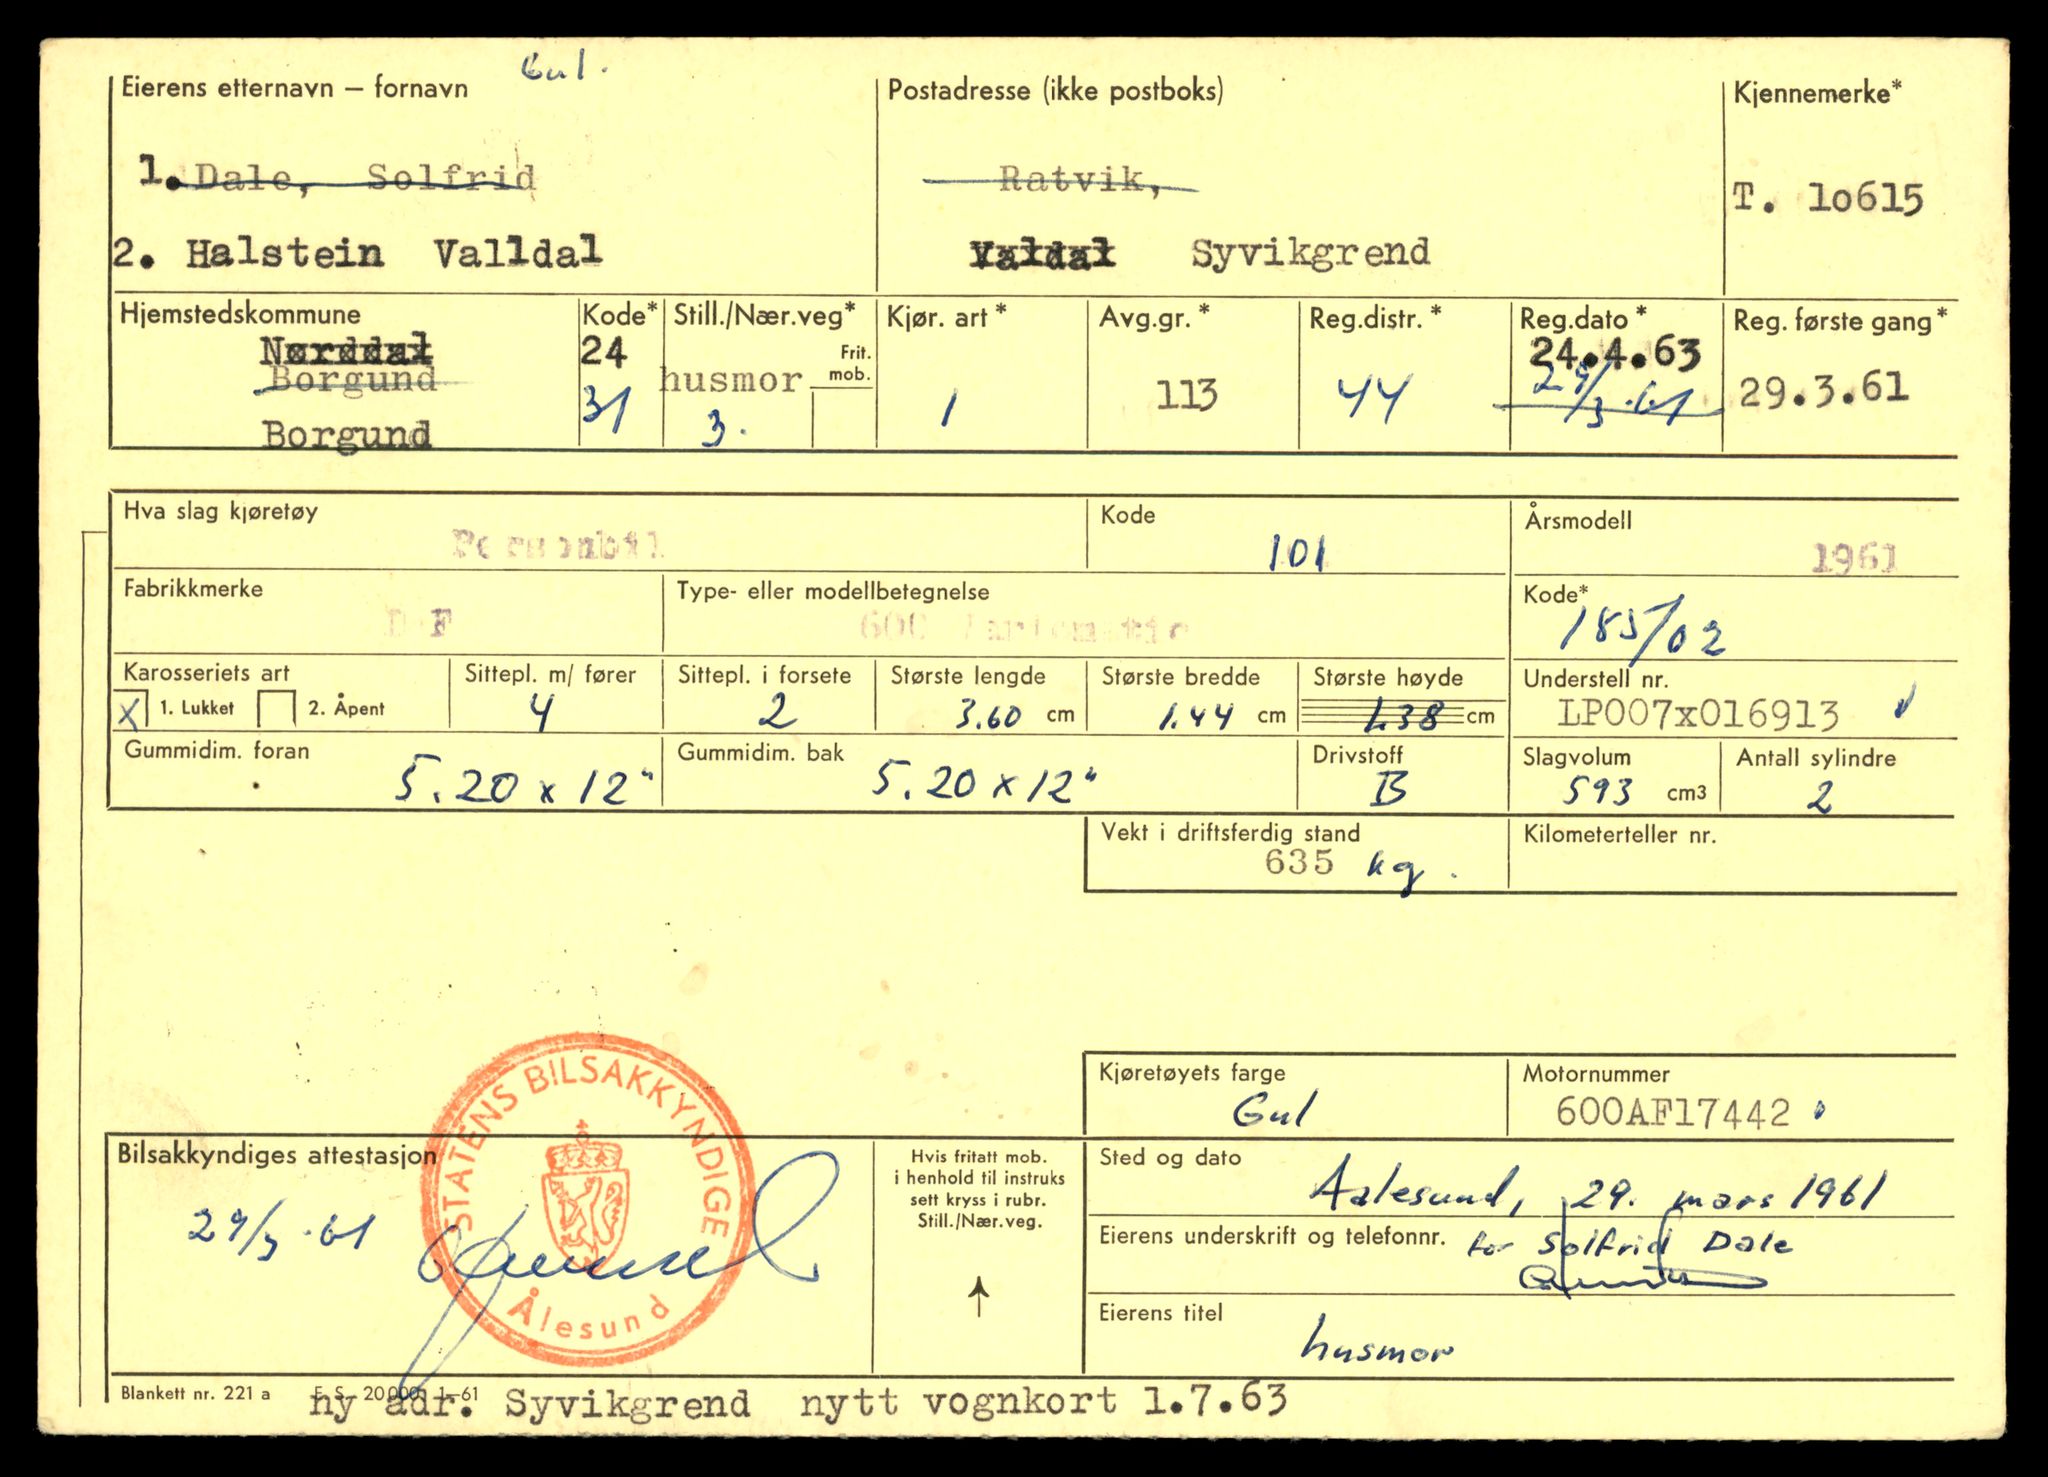 Gul.
Eierens etternavn – fornavn
Postadresse (ikke postboks)
Kjennemerke*
1. Dale, Solfrid
Ratvik,
T. 1o615
2. Halstein Valldal
Valdal Syvikgrend
Hjemstedskommune
Kode*
Still./Nær.veg*
Kjør. art*
Avg.gr. *
Reg.distr. *
Reg.dato *
Reg. første gang*
Norddal
24
Frit. mob.
24.4.63
Borgund
31
husmor
3.
1
113
44
29/3.61
29.3.61
Borgund
Hva slag kjøretøy
Personbil
Kode
101
Årsmodell
1961
Fabrikkmerke
DAF
Type- eller modellbetegnelse
600 Variomatic
Kode*
185/02
Karosseriets art
X 1. Lukket 2. Åpent
Sittepl. m/ fører
4
Sittepl. i forsete
2
Største lengde
3.60 cm
Største bredde
1.44 cm
Største høyde
1.38 cm
Understell nr.
LP007x016913
Gummidim. foran
5.20 x 12"
Gummidim. bak
5.20 x 12"
Drivstoff
B
Slagvolum
593 cm3
Antall sylindre
2
Vekt i driftsferdig stand
635 kg.
Kilometerteller nr.
Kjøretøyets farge
Gul
Motornummer
600AF17442
Bilsakkyndiges attestasjon
29/3.61
STATENS BILSAKKYNDIGE
Ålesund
Hvis fritatt mob.
i henhold til instruks
sett kryss i rubr.
Still./Nær.veg.
↑
Sted og dato
Aalesund, 29. mars 1961
Eierens underskrift og telefonnr.
for Solfrid Dale
Eierens titel
husmor
Blankett nr. 221 a E. S. 20000 1-61
ny adr. Syvikgrend nytt vognkort 1.7.63